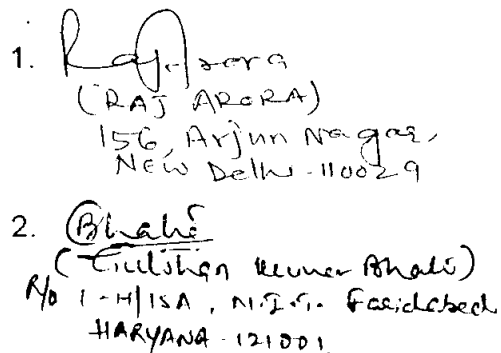 1. Raj Arora
(RAJ ARORA)
156, Arjun Nagar,
New Delhi-110029
2. Bhali
(Gulshan Kumar Bhali)
R/o 1-H/15A, N.I.T. Faridabad
HARYANA-121001